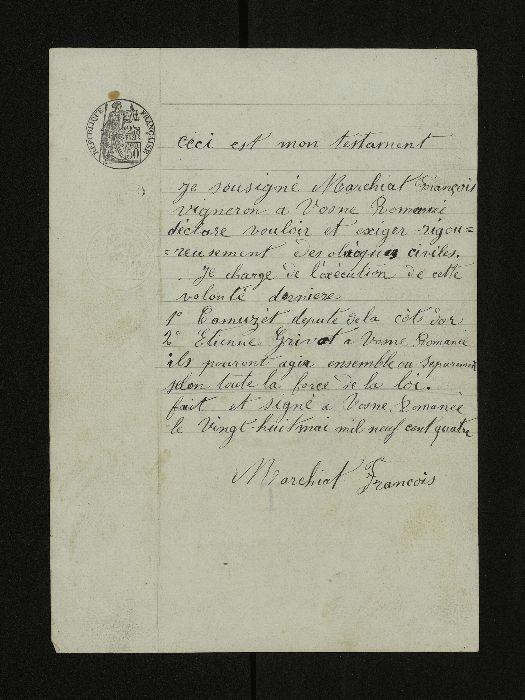 RÉPUBLIQUE FRANÇAISE
ceci est mon testament
Je soussigné Marchiat François
vigneron a Vosne Romanée
déclare vouloir et exiger rigou=
=reusement des obsèques civiles.
Je charge de l'exécution de cette
volonté dernière
1° Camuzet depute de la côte d'or
2° Etienne Grivot a Vosne Romanée
ils pouront agir ensemble ou séparement
selon toute la force de la loi.
fait et signé a Vosne Romanée
le vingt huit mai mil neuf cent quatre
Marchiat François